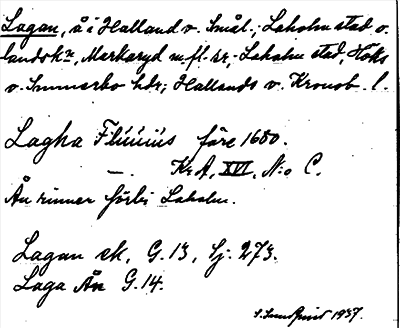 Lagan, å i Halland o. Smål.; Laholm stad o.
landsk:a, Markaryd m. fl. s:r, - Laholm stad, Höks
o. Sunnerbo hdr; Hallands o. Kronob. l.
Lagha Fluuius före 1680.
— KrA, XVI, N:o C.
Ån rinner förbi Laholm.
Lagan sk, G. 13, Sj. 273.
Laga Ån G. 14.
S. Lundquist 1937.